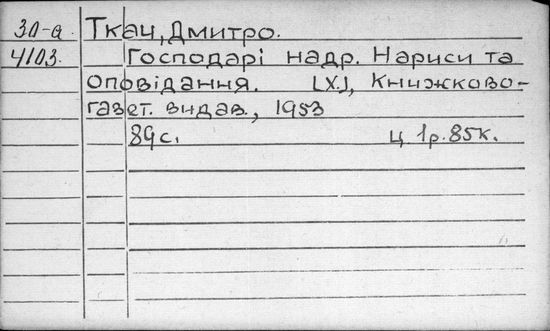 30-а Ткач, Дмитро.
4103. Господарі надр. Нариси та
оповідання. [Х.], Книжково-
газет. видав., 1953
89с. ц. 1р.85к.